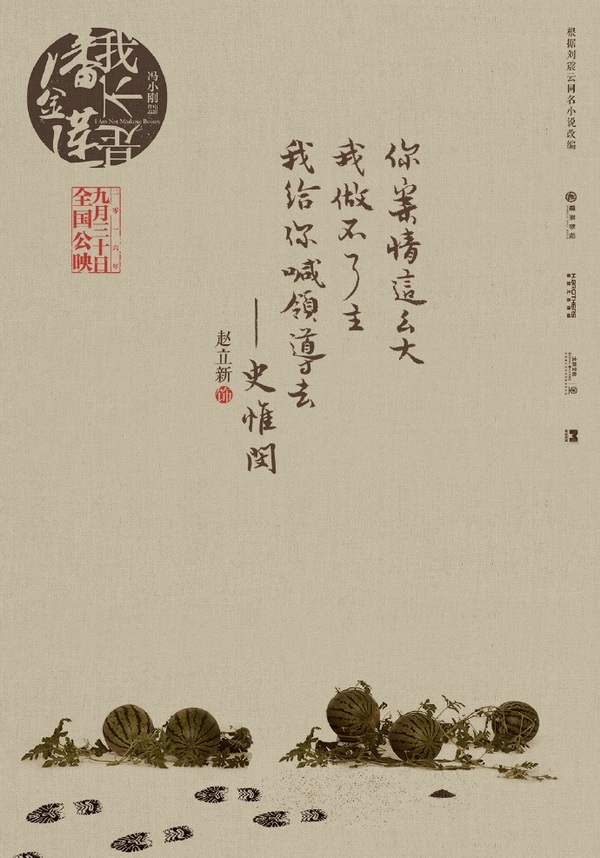 我不是
潘金莲
冯小刚
I Am Not Madame Bovary
二零一六年
九月三十日
全国公映
你案情這么大
我做不了主
我给你喊領導去
——史惟閔
赵立新 饰
根据刘震云同名小说改编